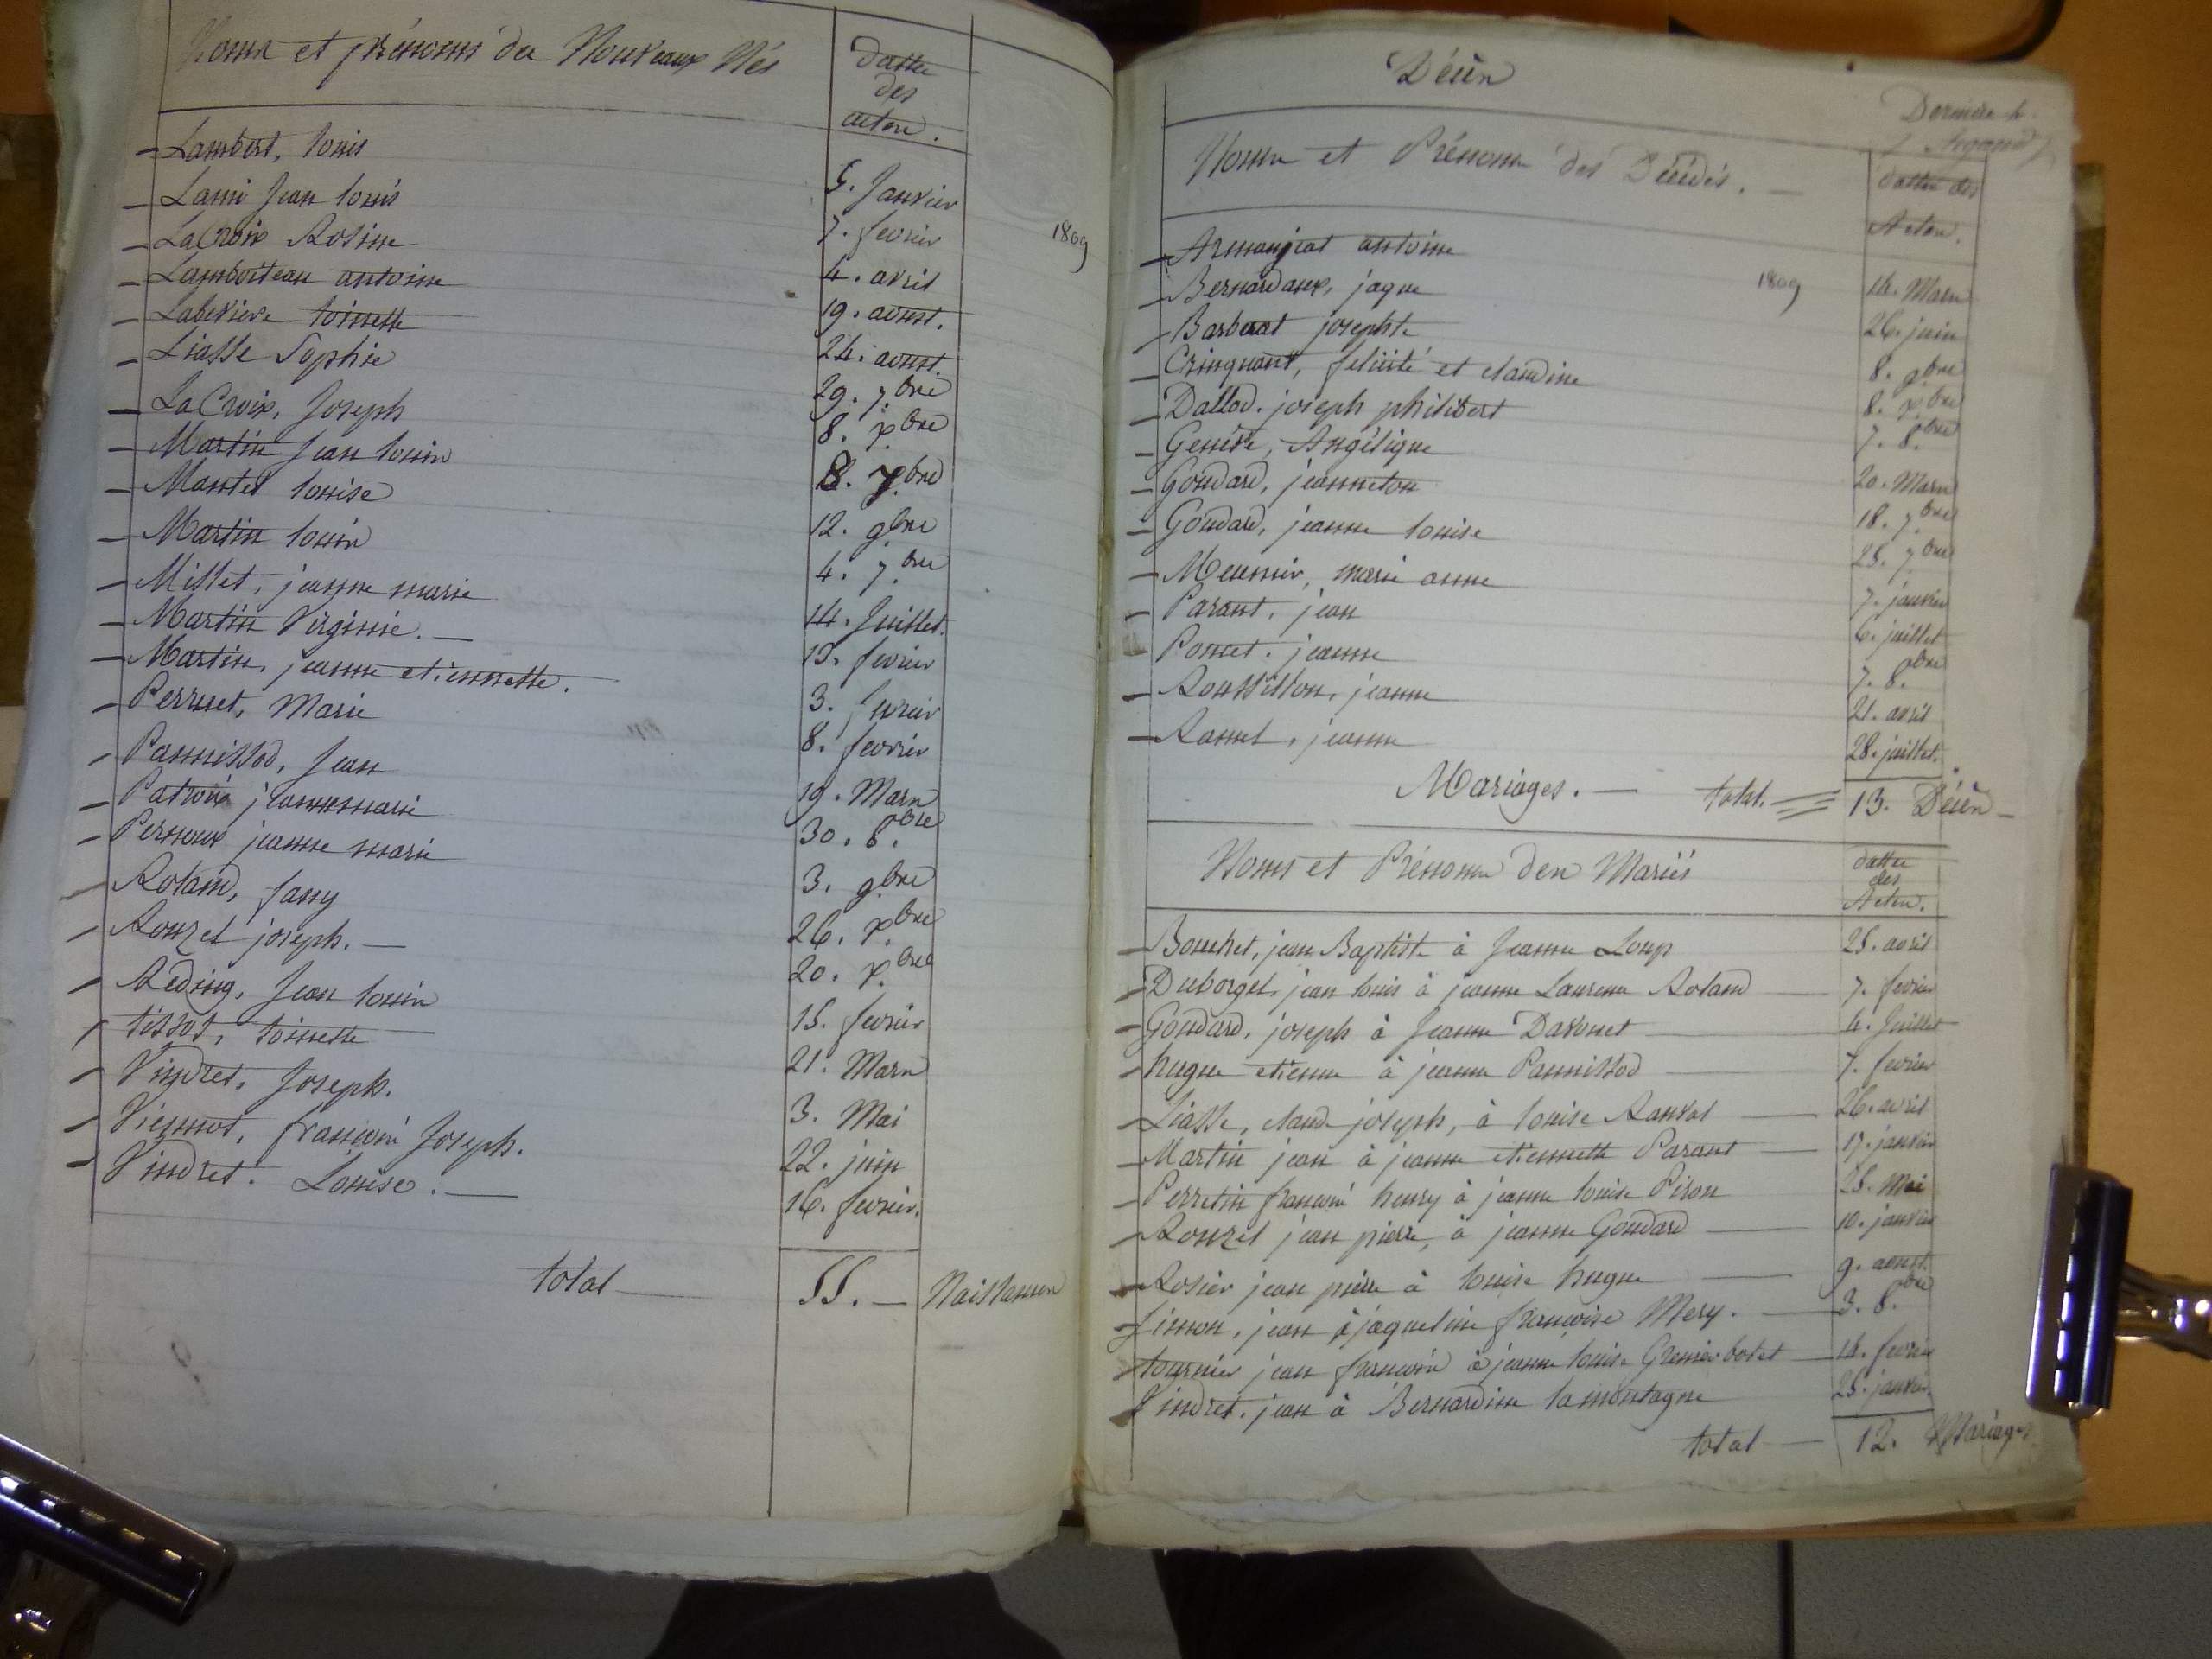 Noms et prénoms des Nouveaux Nés
dattes
des
actes.
1809
Lambert, Louis 5. Janvier
Lami Jean Louis 7. fevrier
LaCroix Rosine 4. avril
Lamboiteau antoine 19. aoust.
Labeviere toinette 24. aoust.
Liasse Sophie 29. 7.bre
LaCroix, Joseph 8. x.bre
Martin Jean Louis 8. 7.bre
Mantel Louise 12. 9bre
Martin Louis 4. 7.bre
Millet, jeanne marie 14. Juillet.
Martin Virginie. 13. fevrier
Martin, jeanne etiennette. 3. fevrier
Perruet, Marie 8. fevrier
Pannissod, Jean 19. Mars
Patroix jeannemarie 30. 8.bre
Pernoux jeanne marie 3. 9bre
Roland, fany 26. x.bre
Rouzet joseph. 20. x.bre
Réding, Jean Louis 15. fevrier
tissot, toinette 21. Mars
Vindret, Joseph. 3. Mai
Viennot, francois Joseph. 22. juin
Vindret. Louise. 16. fevrier.
total 55. Naissances
Décès
Derniere
Noms et Prénoms des Décédés.
dattes des
Actes.
1809
Armanjeat antoine 14. Mars
Bernardaux, jaque 26. juin
Barberat josephte 8. 9bre
Crinquant, felicité et claudine 8. x.bre
Dallod. joseph philibert 7. 8.bre
Genève, Angélique 20. Mars
Goudard, jeanneton 18. 7.bre
Goudard, jeanne Louise 25. 7.bre
Meunier, marie anne 7. janvier
Parant, jean 6. juillet
Poncet. jeanne 7. 8.bre
Roussillon, jeanne 21. avril
Ramel, jeanne 28. juillet.
total. 13. Décès
Mariages.
Noms et Prénoms des Mariés
dattes
des
Actes.
Bouchet, jean Baptiste à Jeanne Loup 25. avril
Duborget, jean Louis à jeanne Laurence Roland 7. fevrier
Goudard, joseph à Jeanne Davonet 4. Juillet
hugue etienne à jeanne Pannissod 7. fevrier
Liasse, claude joseph, à Louise Ranvol 26. avril
Martin jean à jeanne etiennette Parant 17. janvier
Perretin francois henry à jeanne Louise Piron 25. Mai
Rouzet jean pierre, à jeanne Goudard 10. janvier
Rosier jean pierre à Louise hugue 9. aoust.
Simon, jean à jaqueline francoise Mery. 3. 8.bre
tournier jean francois à jeanne Louise Grenier botet 14. fevrier
Vindret. jean à Bernardine lamontagne 25. janvier.
total 12. Mariages